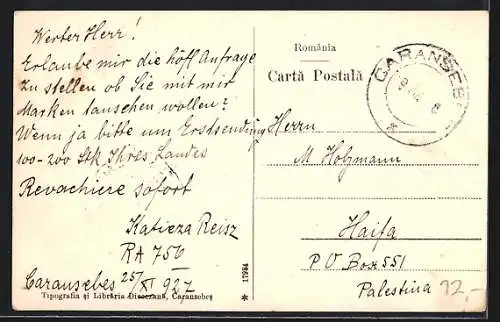 Werter Herr!
Erlaube mir die höfl Anfrage
zu stellen ob Sie mit mir
Marken tauschen wollen?
Wenn ja bitte um Erstsendung
100-200 Stk Ihres Landes
Revachiere sofort
Katieza Reisz
RA 750
Caransebes 25/XI 927
Tipografia și Librăria Diaserană, Caransebeș
* 17984
România
Cartă Postală
CARANSEBEȘ
Herrn
M Holzmann
Haifa
PO Box 551
Palestina
12,-